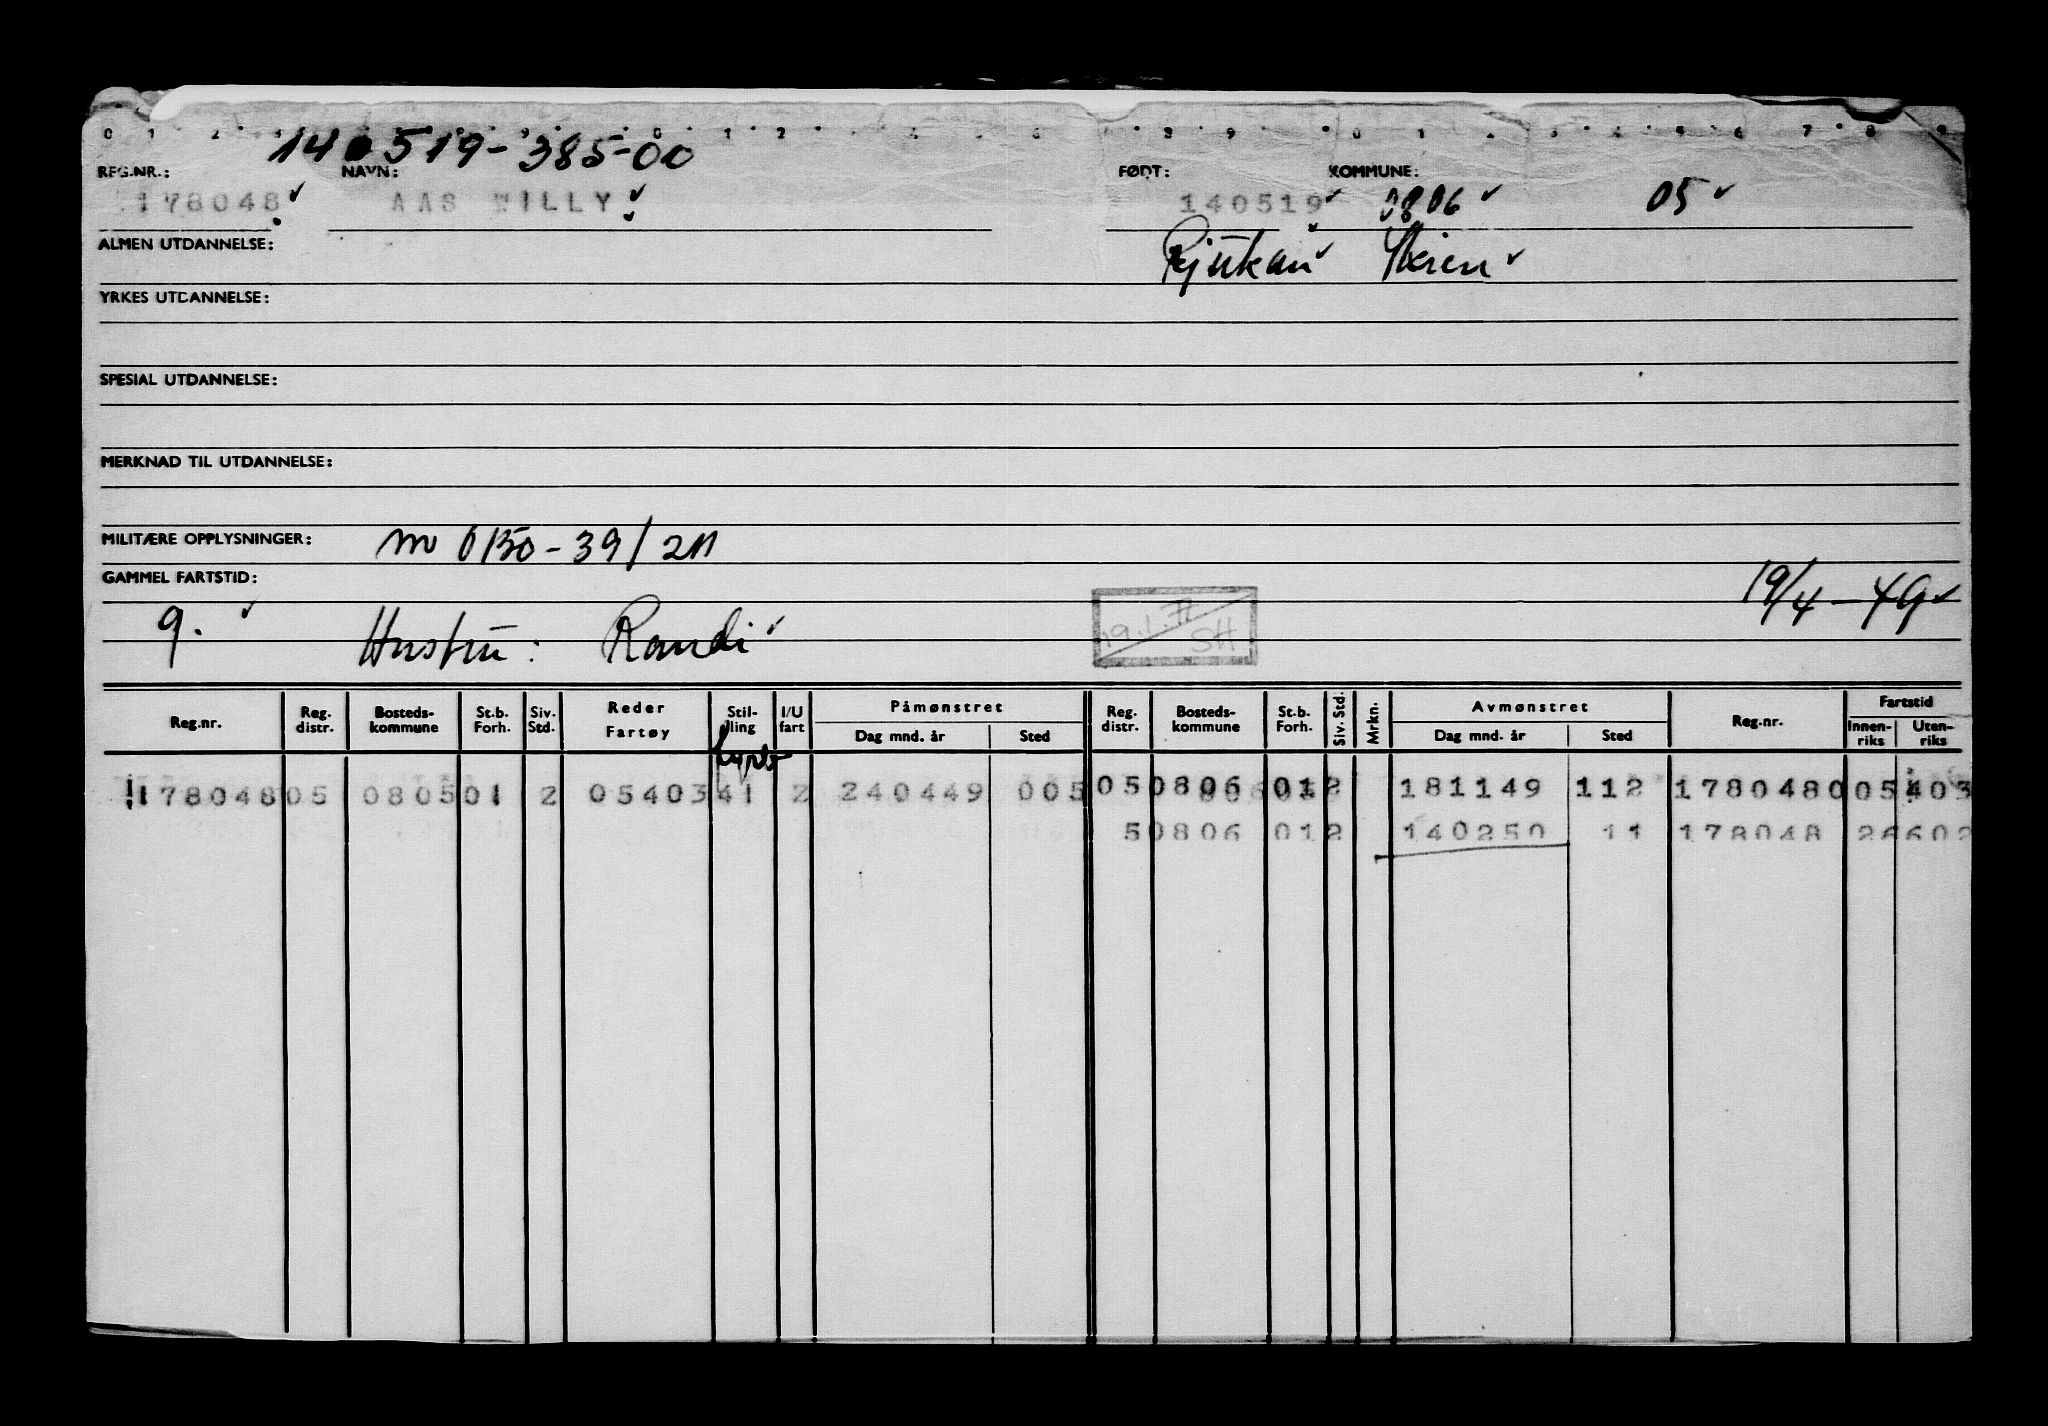 140519-385-00
REG.NR.: NAVN: FØDT: KOMMUNE:
178048 AAS WILLY 140519 0806 05
ALMEN UTDANNELSE: Rjukan Skien
YRKES UTDANNELSE:
SPESIAL UTDANNELSE:
MERKNAD TIL UTDANNELSE:
MILITÆRE OPPLYSNINGER:
GAMMEL FARTSTID: 19/4-49
9. Hustru: Randi
19.1. SH
Reg.nr. Reg. distr. Bosteds-kommune St.b. Forh. Siv. Std. Reder Fartøy Stil-ling I/U fart Påmønstret Dag mnd. år Sted Reg. distr. Bosteds-kommune St.b. Forh. Siv. Std. Mrkn. Avmønstret Dag mnd. år Sted Reg.nr. Fartstid Innen-riks Uten-riks
178048 05 0805 01 2 05403 41 2 240449 005 05 0806 01 2 181149 112 178048 0 05 403
5 0806 01 2 140250 11 178048 26 602